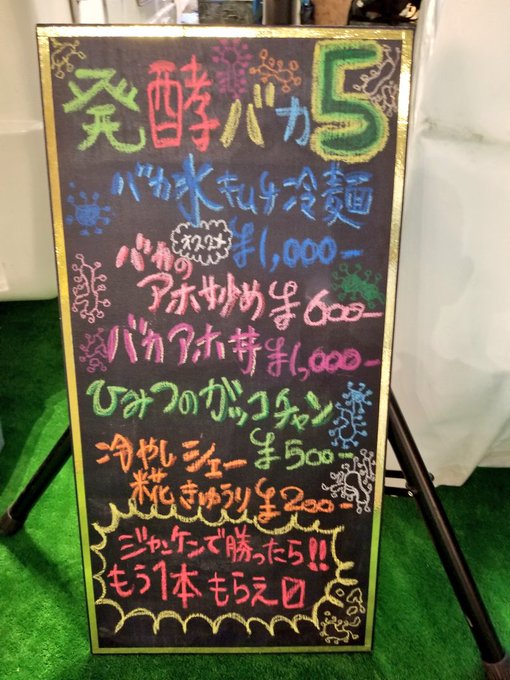 発酵バカ5
バカ氷キムチ冷麺
オススメ
¥1,000-
バカの
アホ炒め ¥600-
バカアホ丼 ¥1,000-
ひみつのガッコチャン
¥500-
冷やしシェー
糀きゅうり ¥200-
ジャンケンで勝ったら!!
もう1本もらえ〼